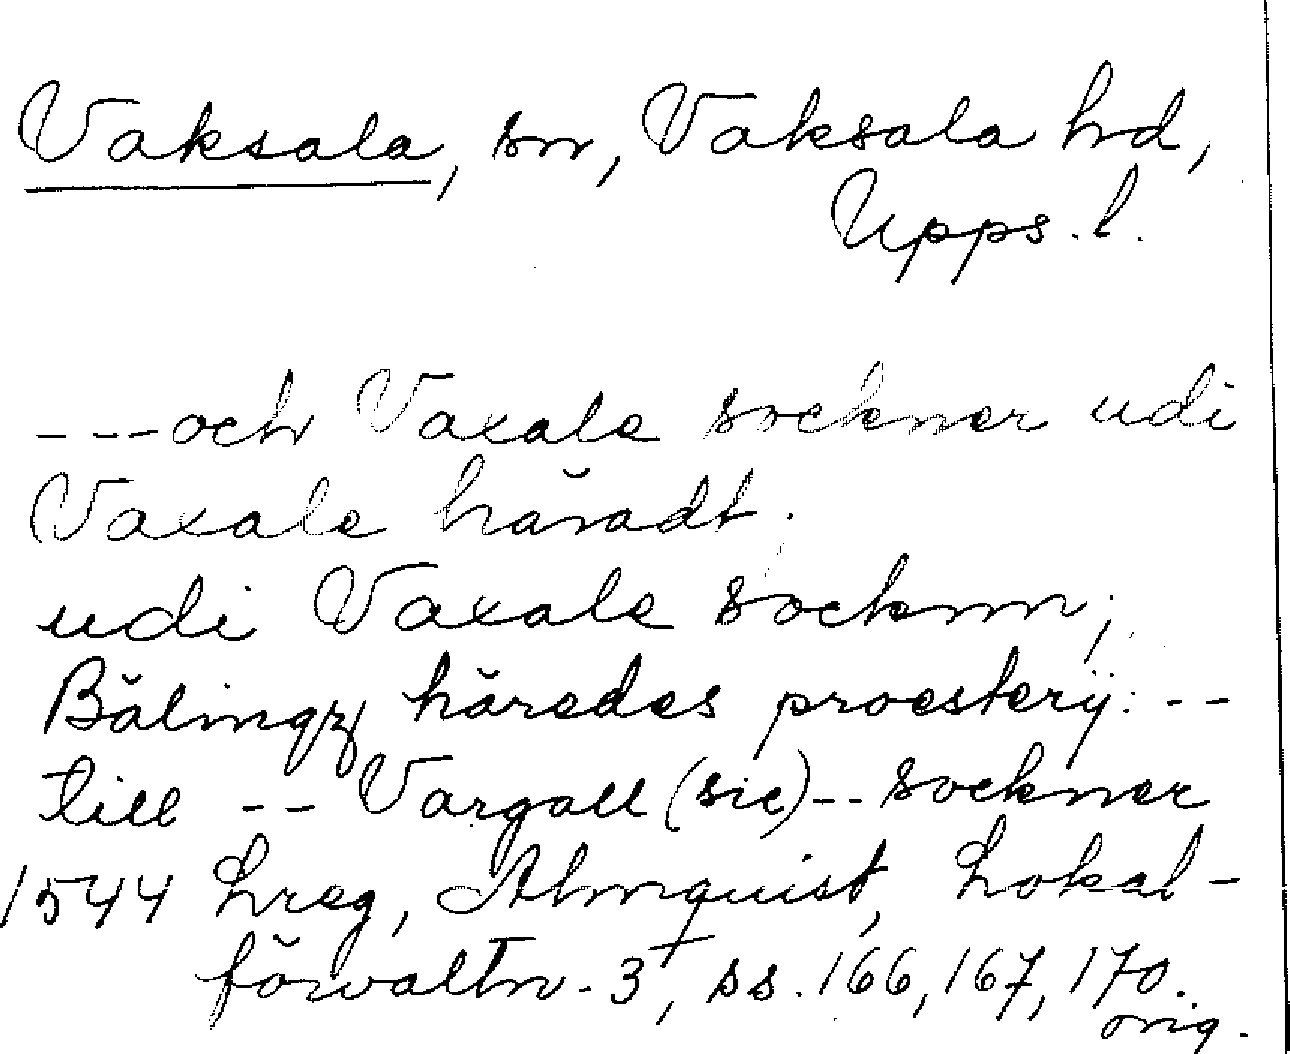 Vaksala, sn, Vaksala hd,
Upps. l.
---och Vaxale sockner udi
Vaxale häradt;
udi Vaxale socknn;
Bälingz häredes proesterij: --
till -- Vargall (sic) -- sockner
1544 Lreg, Almquist, Lokal-
förvaltn. 3, ss. 166, 167, 170.
orig.